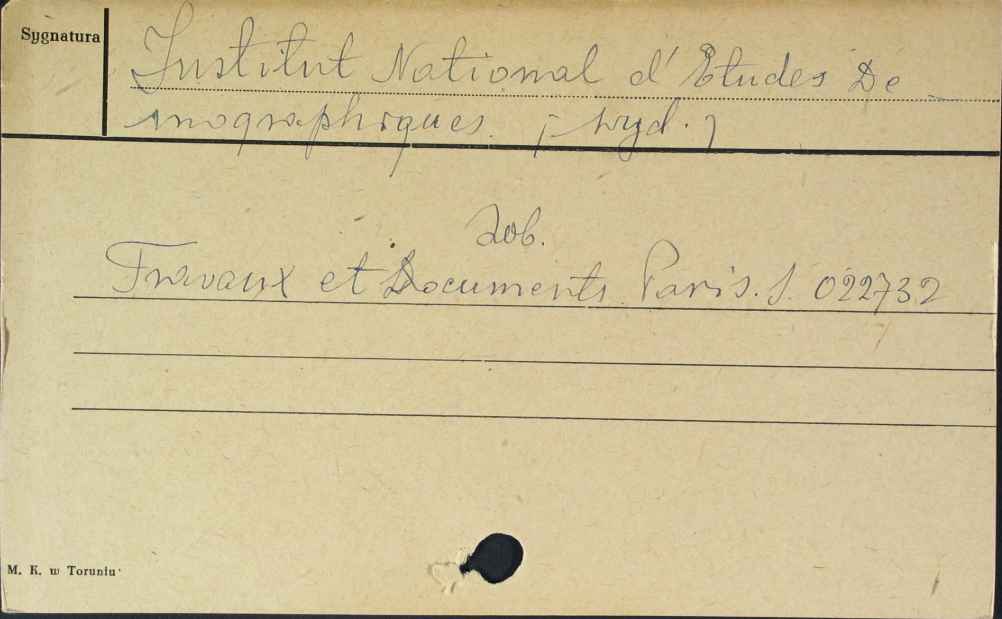 Sygnatura
Institut National d'Etudes De-
mographiques. [wyd.]
Zob.
Travaux et Documents. Paris. S. 022732
M. K. w Toruniu